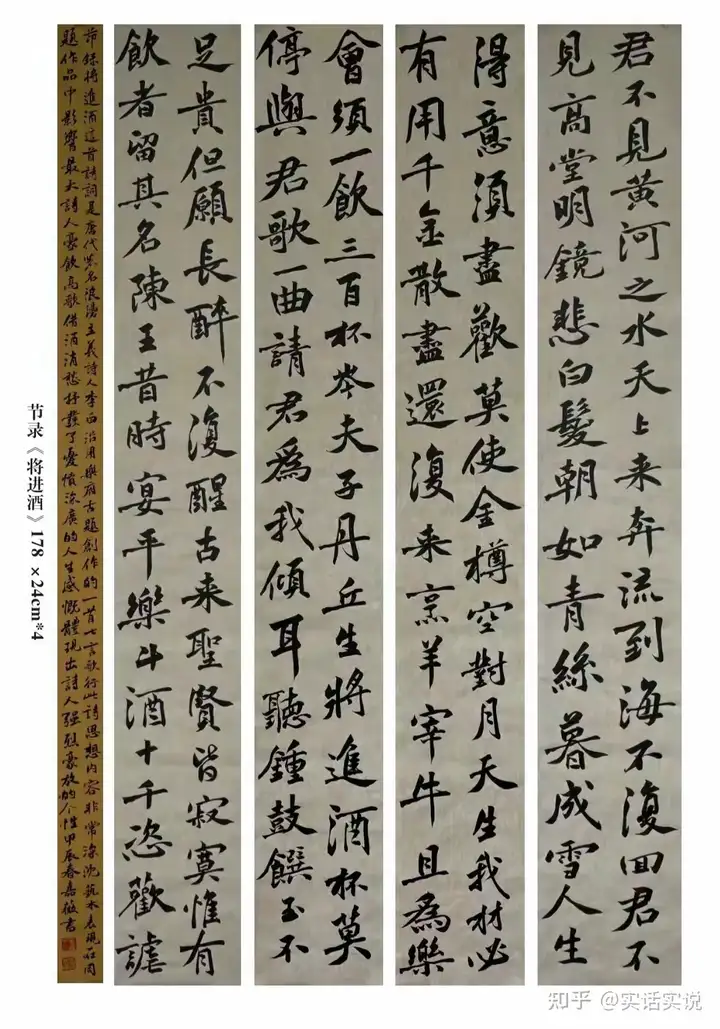 君不見黃河之水天上来奔流到海不復回君不
見高堂明鏡悲白髮朝如青絲暮成雪人生
得意須盡歡莫使金樽空對月天生我材必
有用千金散盡還復来烹羊宰牛且為樂
會須一飲三百杯岑夫子丹丘生將進酒杯莫
停與君歌一曲請君為我傾耳聽鍾鼓饌玉不
足貴但願長醉不復醒古来聖賢皆寂寞惟有
飲者留其名陳王昔時宴平樂斗酒十千恣歡謔
节録將進酒這首詩詞是唐代著名浪漫主義詩人李白沿用樂府古題創作的一首七言歌行此詩思想内容非常深沈藝术表現在同
題作品中影響最大詩人豪飲高歌借酒消愁抒發了憂憤深廣的人生感慨體現出詩人强烈豪放的个性甲辰春嘉
書
节录《将进酒》178×24cm*4
知乎 @实话实说